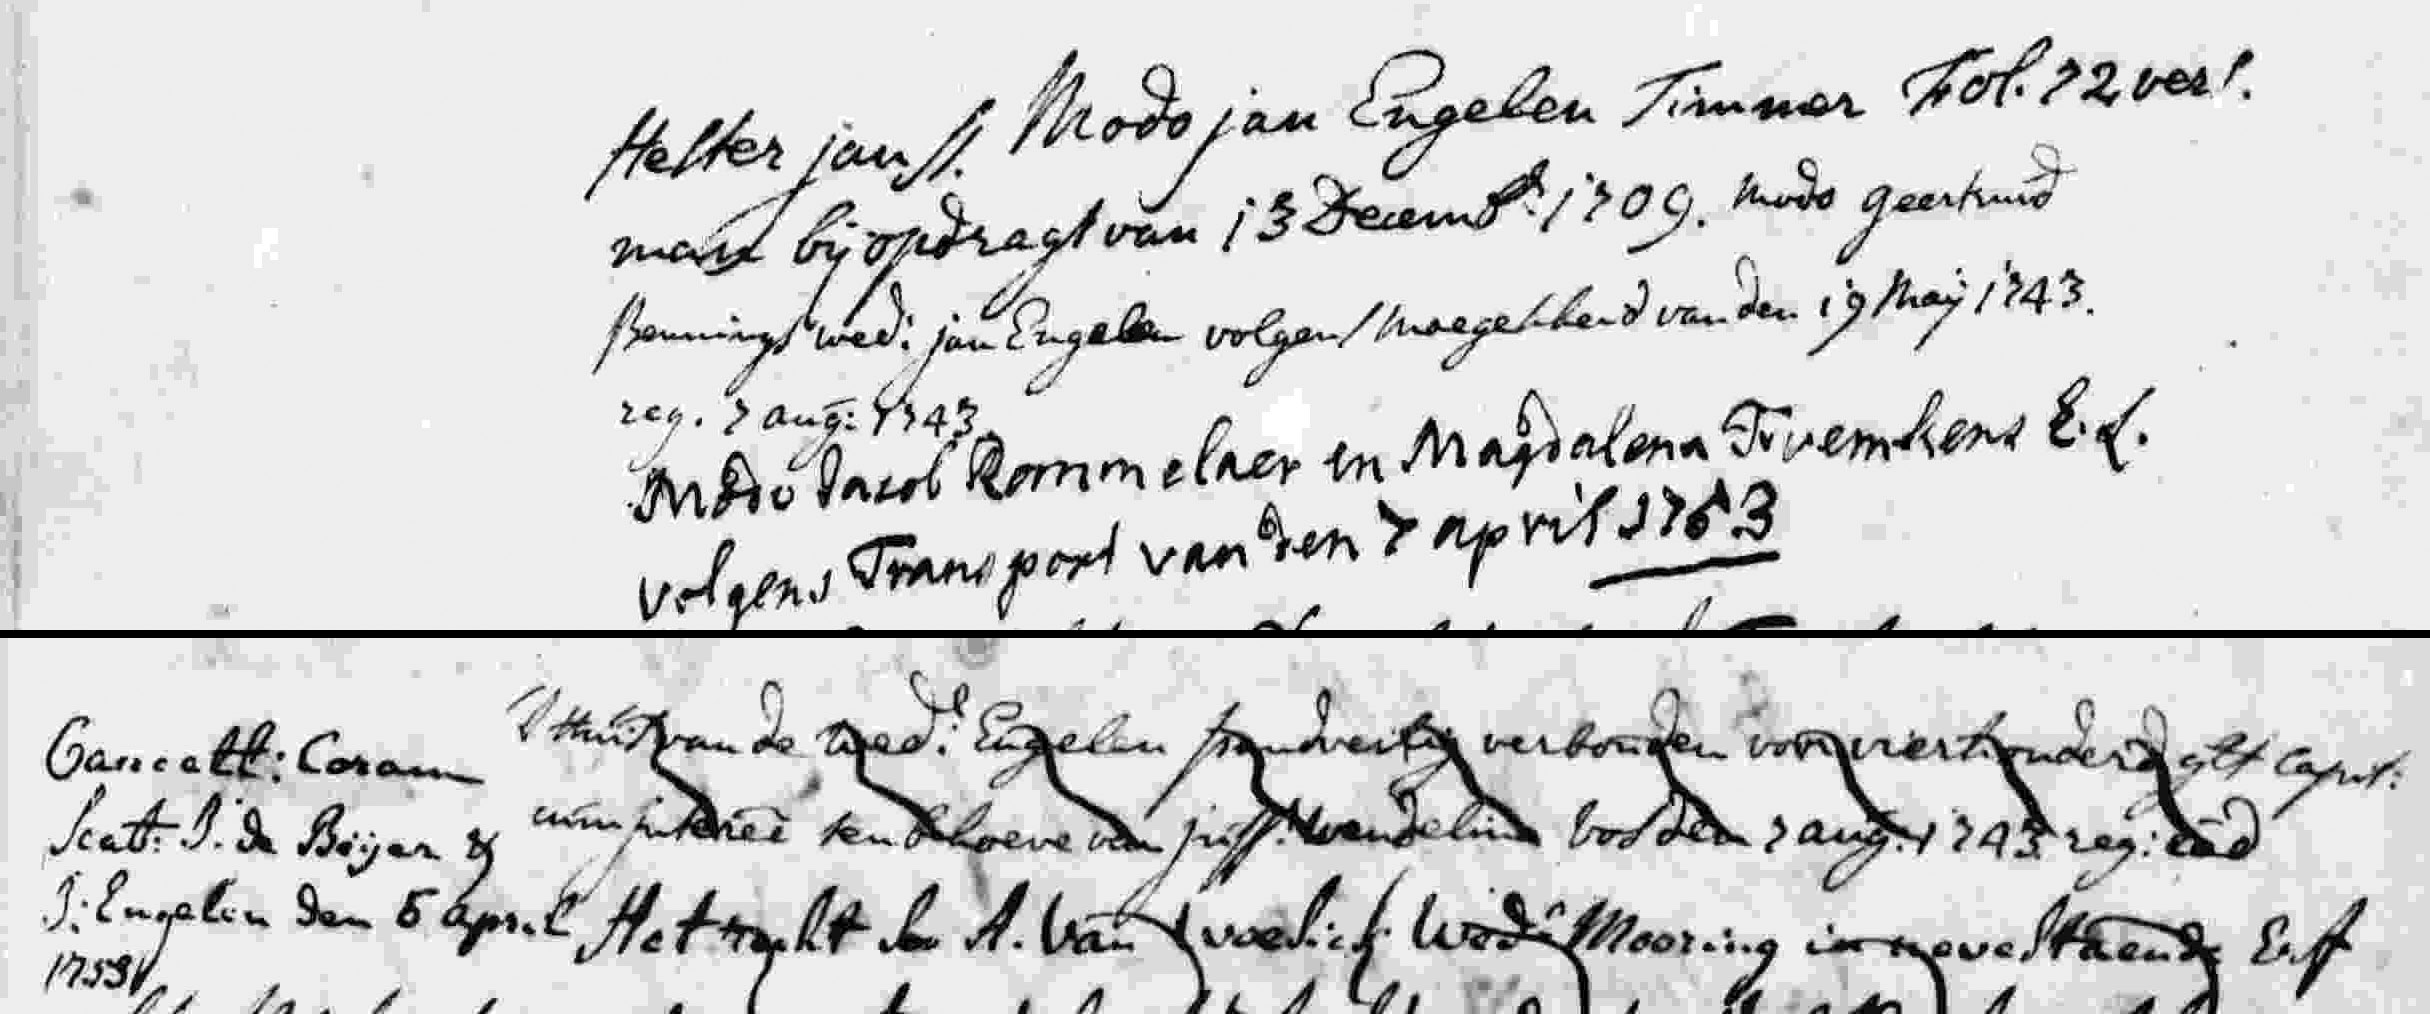 Helter janss. Modo jan Engelen Timmer Fol. 72 vers.
man bij opdragt van 13 Decemb. 1709. modo geertruid
Bennings wed: jan Engelen volgens maegescheid van den 19 Maij 1743.
reg. 7 aug: 1743.
Modo Jacob Rommelaer en Magdalena E.L.
volgens Transport van den 7 april 1753
Cancell: Coram
Scab: J. de Böijer &
J: Engelen den 5 april
1753
van de wed: Engelen pandweisig verbonden voor vierhonderd glt Capit:
cum interesse ten behoeve van juff. Wendelina vos den 7 aug. 1743 reg: eod
Het recht A. Van Wed: Mooring in nevenstaende Erff